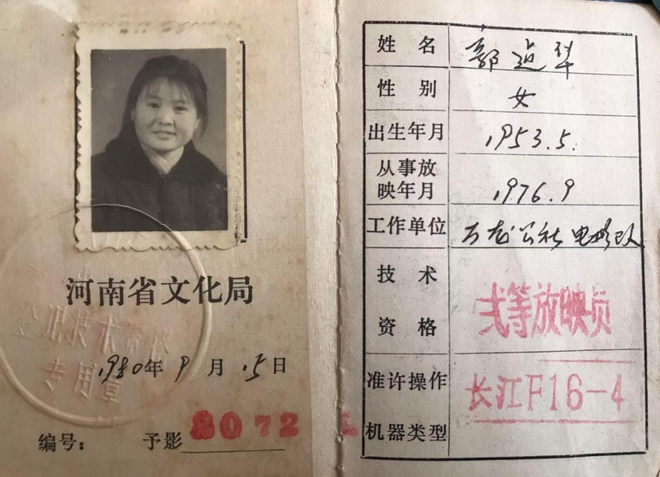 河南省文化局
专用章
1980年9月15日
编号: 予影 8072
姓名 郭 华
性别 女
出生年月 1953.5.
从事放映年月 1976.9
工作单位 公社电影队
技术资格 弍等放映员
准许操作机器类型 长江F16-4